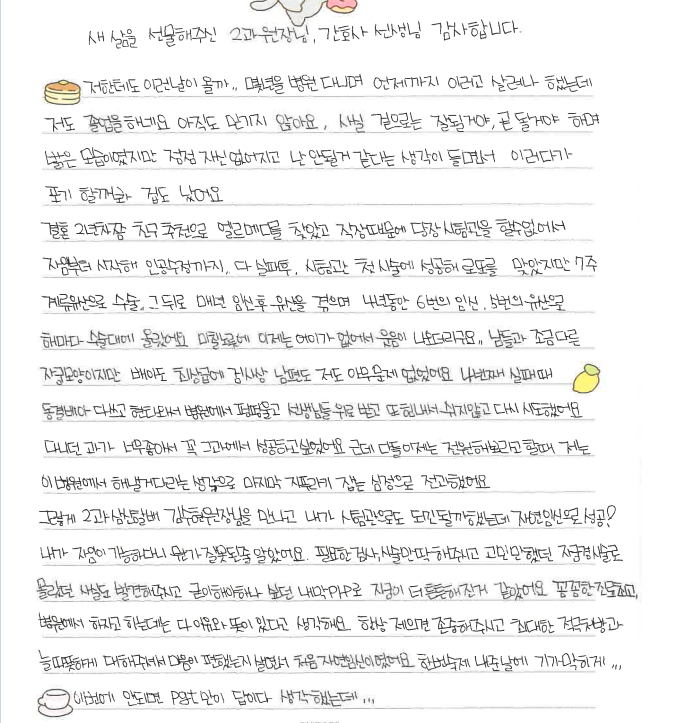 새 삶을 선물해주신 2과 원장님, 간호사 선생님 감사합니다.
저한테도 이런날이 올까,, 몇년을 병원 다니며 언제까지 이러고 살려나 했는데
저도 졸업을하네요 아직도 믿기지 않아요, 사실 겉으로는 잘될거야, 곧 될거야 하며
밝은 모습이였지만 점점 자신없어지고 난 안될거 같다는 생각이 들면서 이러다가
포기 할까봐 겁도 났어요
결혼 2년차쯤 친구 추천으로 엘르메디를 찾았고 직장때문에 당장 시험관을 할수없어서
자임부터 시작해 인공수정까지,, 다 실패후, 시험관 첫 시술에 성공해 로또를 맞았지만 7주
계류유산으로 수술,, 그 뒤로 매년 임신후 유산을 겪으며 4년동안 6번의 임신, 5번의 유산으로
해마다 수술대에 올랐어요 마취 에 이제는 어이가 없어서 웃음이 나오더라구요,, 남들과 조금 다른
자궁모양이지만 배아도 최상급에 검사상 남편도 저도 아무문제 없었어요 4번째 실패때
동결배아 다쓰고 현타와서 병원에서 펑펑울고 선생님들 위로 받고 또 힘내서 쉬지않고 다시 시도했어요
다니던 과가 너무좋아서 꼭 그과에서 성공하고싶었어요 근데 다들이제는 전원해보라고 할때 저는
이 병원에서 해낼거다라는 생각으로 마지막 지푸라기 잡는 심정으로 전과했어요
그렇게 2과 삼신할배 김 원장님을 만나고 내가 시험관으로도 될까했는데 자연임신으로 성공?
내가 자임이 가능하다니 뭔가 잘못된줄 알았어요. 필요한검사,시술만 딱 해주시고 고민만 했던 자궁경시술로
몰랐던 사실도 발견해주시고 굳이해야하나 싶던 내막PRP로 자궁이 더 튼튼해진거 같았어요 꼼꼼한진료하고,
병원에서 하자고 하는데는 다 이유와 뜻이 있다고 생각해요 항상 제의견 존중해주시고 최대한 적극처방과
늘따뜻하게 대해주셔서 마음이 편했는지 설면서 처음 자연임신이였어요 한번숙제 내준날에 기가막히게 ,,,
이번에 안되면 PGT만이 답이다 생각했는데 ,,,